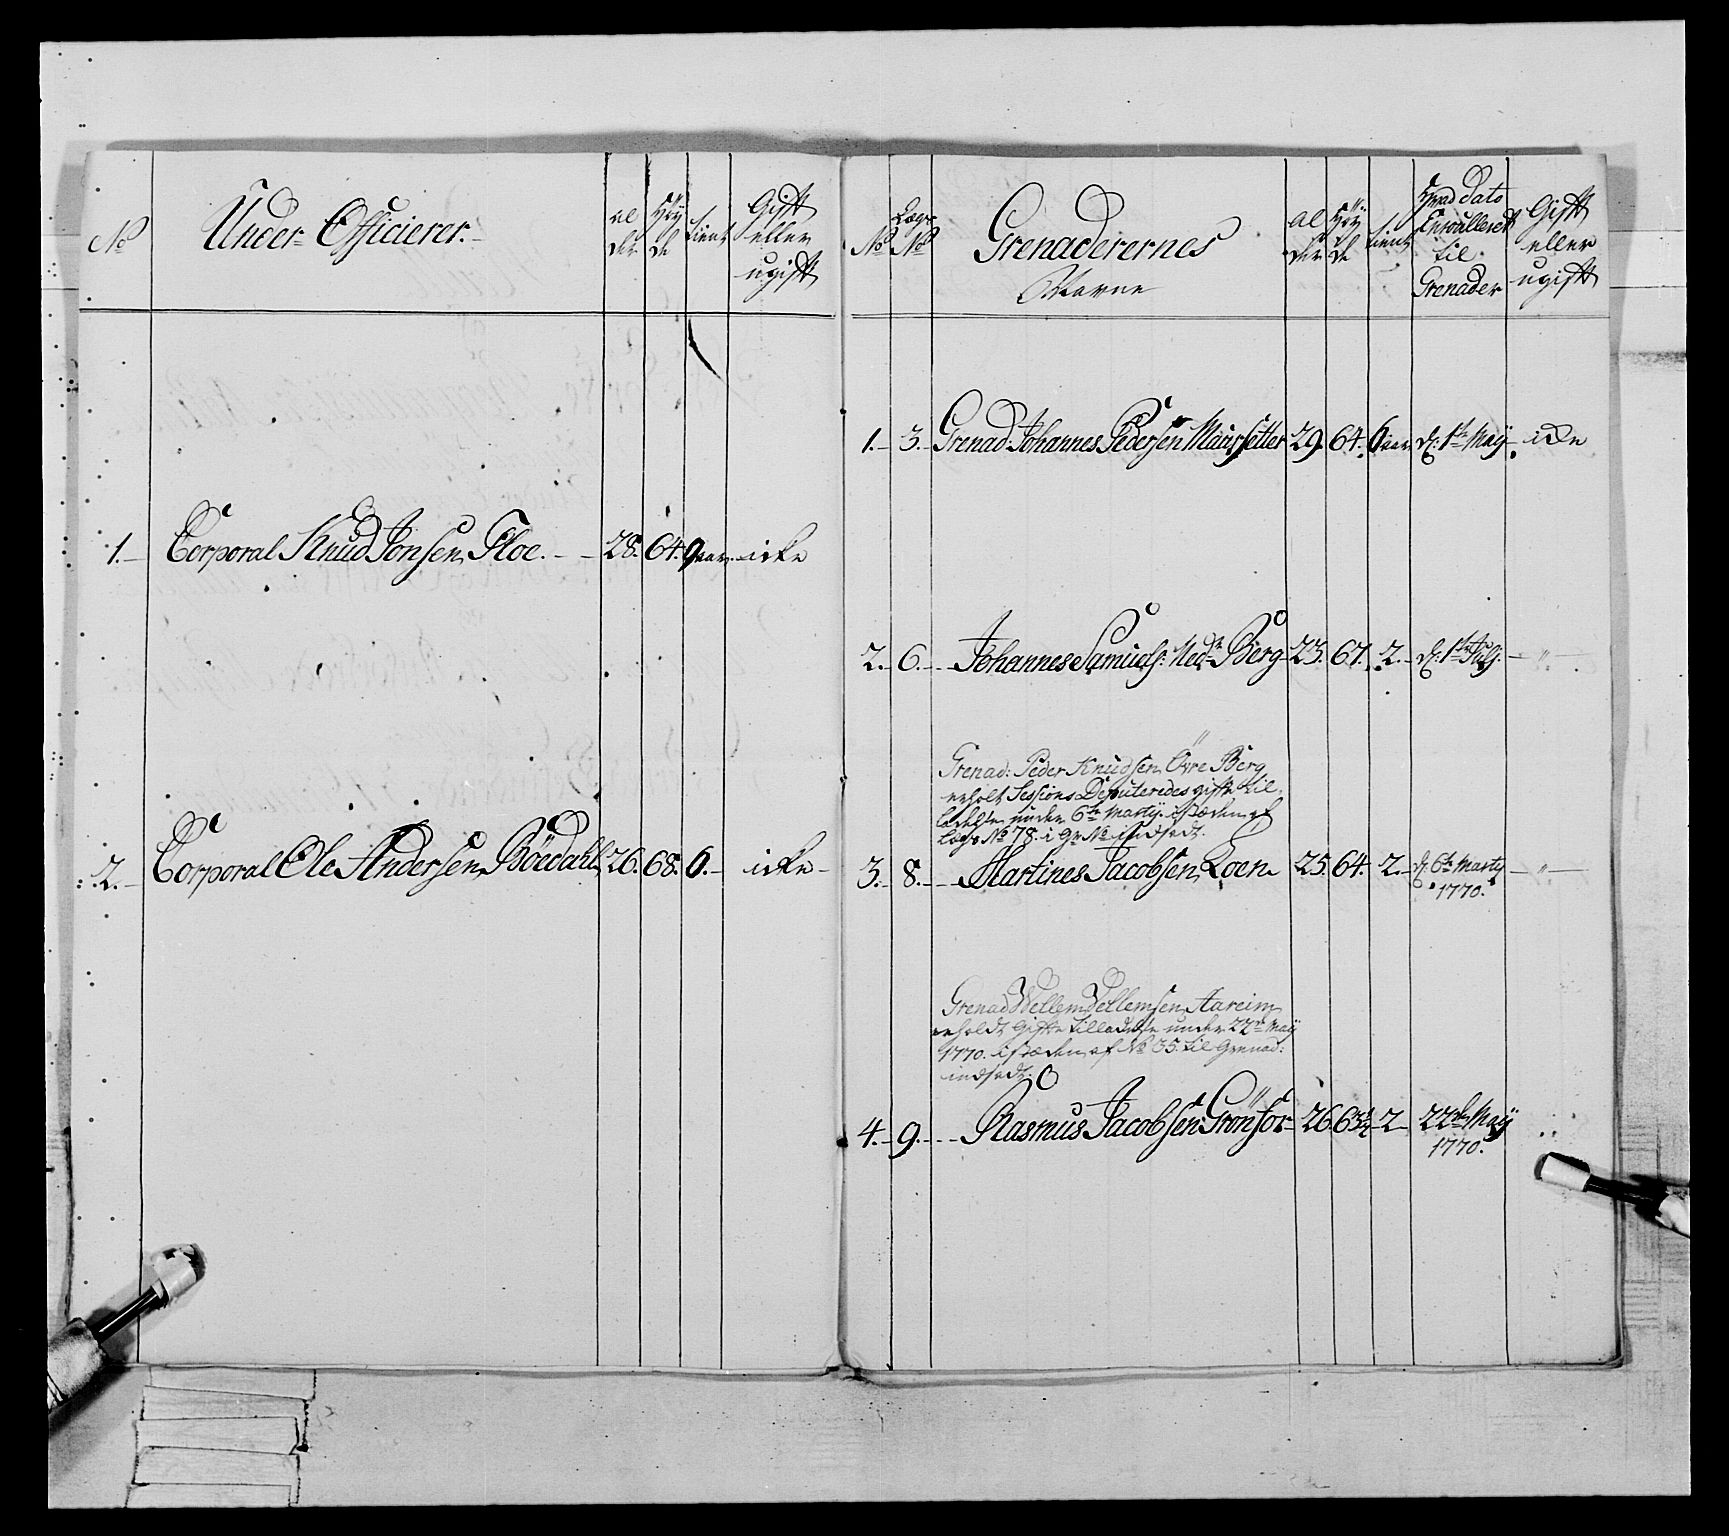 No
Under- Officierer.
al
der
Höy
de
tient
Gift
eller
ugift
1. Corporal Knud Jonsen Floe. 28. 64. 9 aar. icke
2. Corporal Ole Andersen Böedahl 26. 68. 6. icke
No
Lægs
No
Grenaderernes
Navne
al
der
Höy
de
tient
Hvad dato
Enroulleret
til
Grenader
Gift
eller
ugift
1. 3. Grenad: Johannes Pedersen Maursetter 29. 64. 6 aar d: 1te Maÿ icke
2. 6. Johannes Samuels: Nedr Berg 23. 67. 2. d: 1te Julj. "
Grenad: Peder Knudsen Öyre Berg
erholt Sessions Deputeredes gifte til
ladelse under 6te Martÿ. istæden af
Lægs No 78. i Gr No indsadt.
3. 8. Martines Jacobsen Loen 25. 64. 2. d: 6te Martÿ "
1770.
Grenad Wellem Wellemsen Aareim
erholdt gifte tilladelse under 22de Maÿ
1770. istæden af No 35. til Grenad:
indsadt.
4. 9. Rasmus Jacobsen Grönfor 26 63½ 2 22de Maÿ
1770.